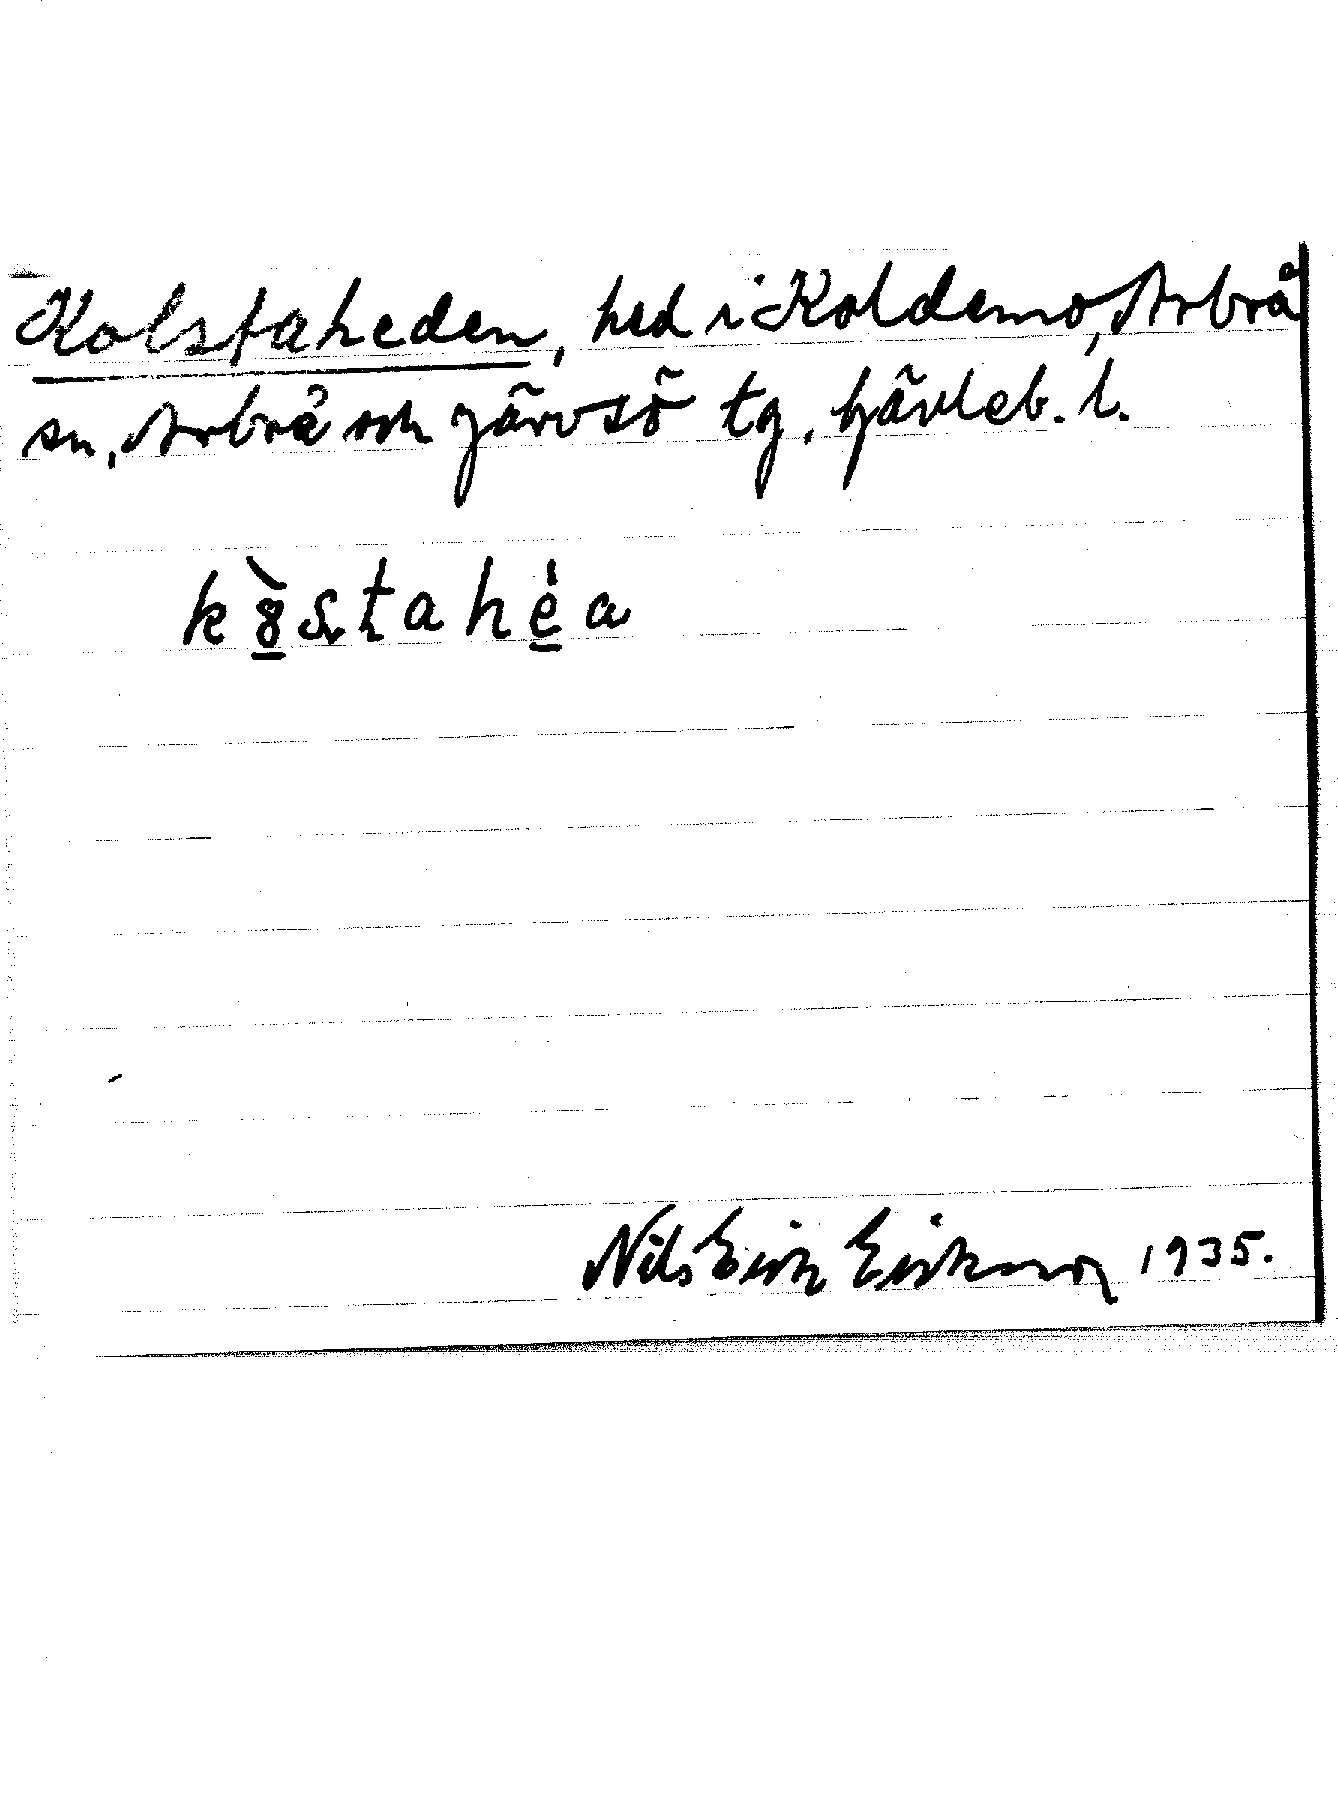 Kolstaheden, hed i Koldemo, Arbrå
sn, Arbrå och Järvsö tg, Gävleb. l.
Nils Erik Eriksson 1935.